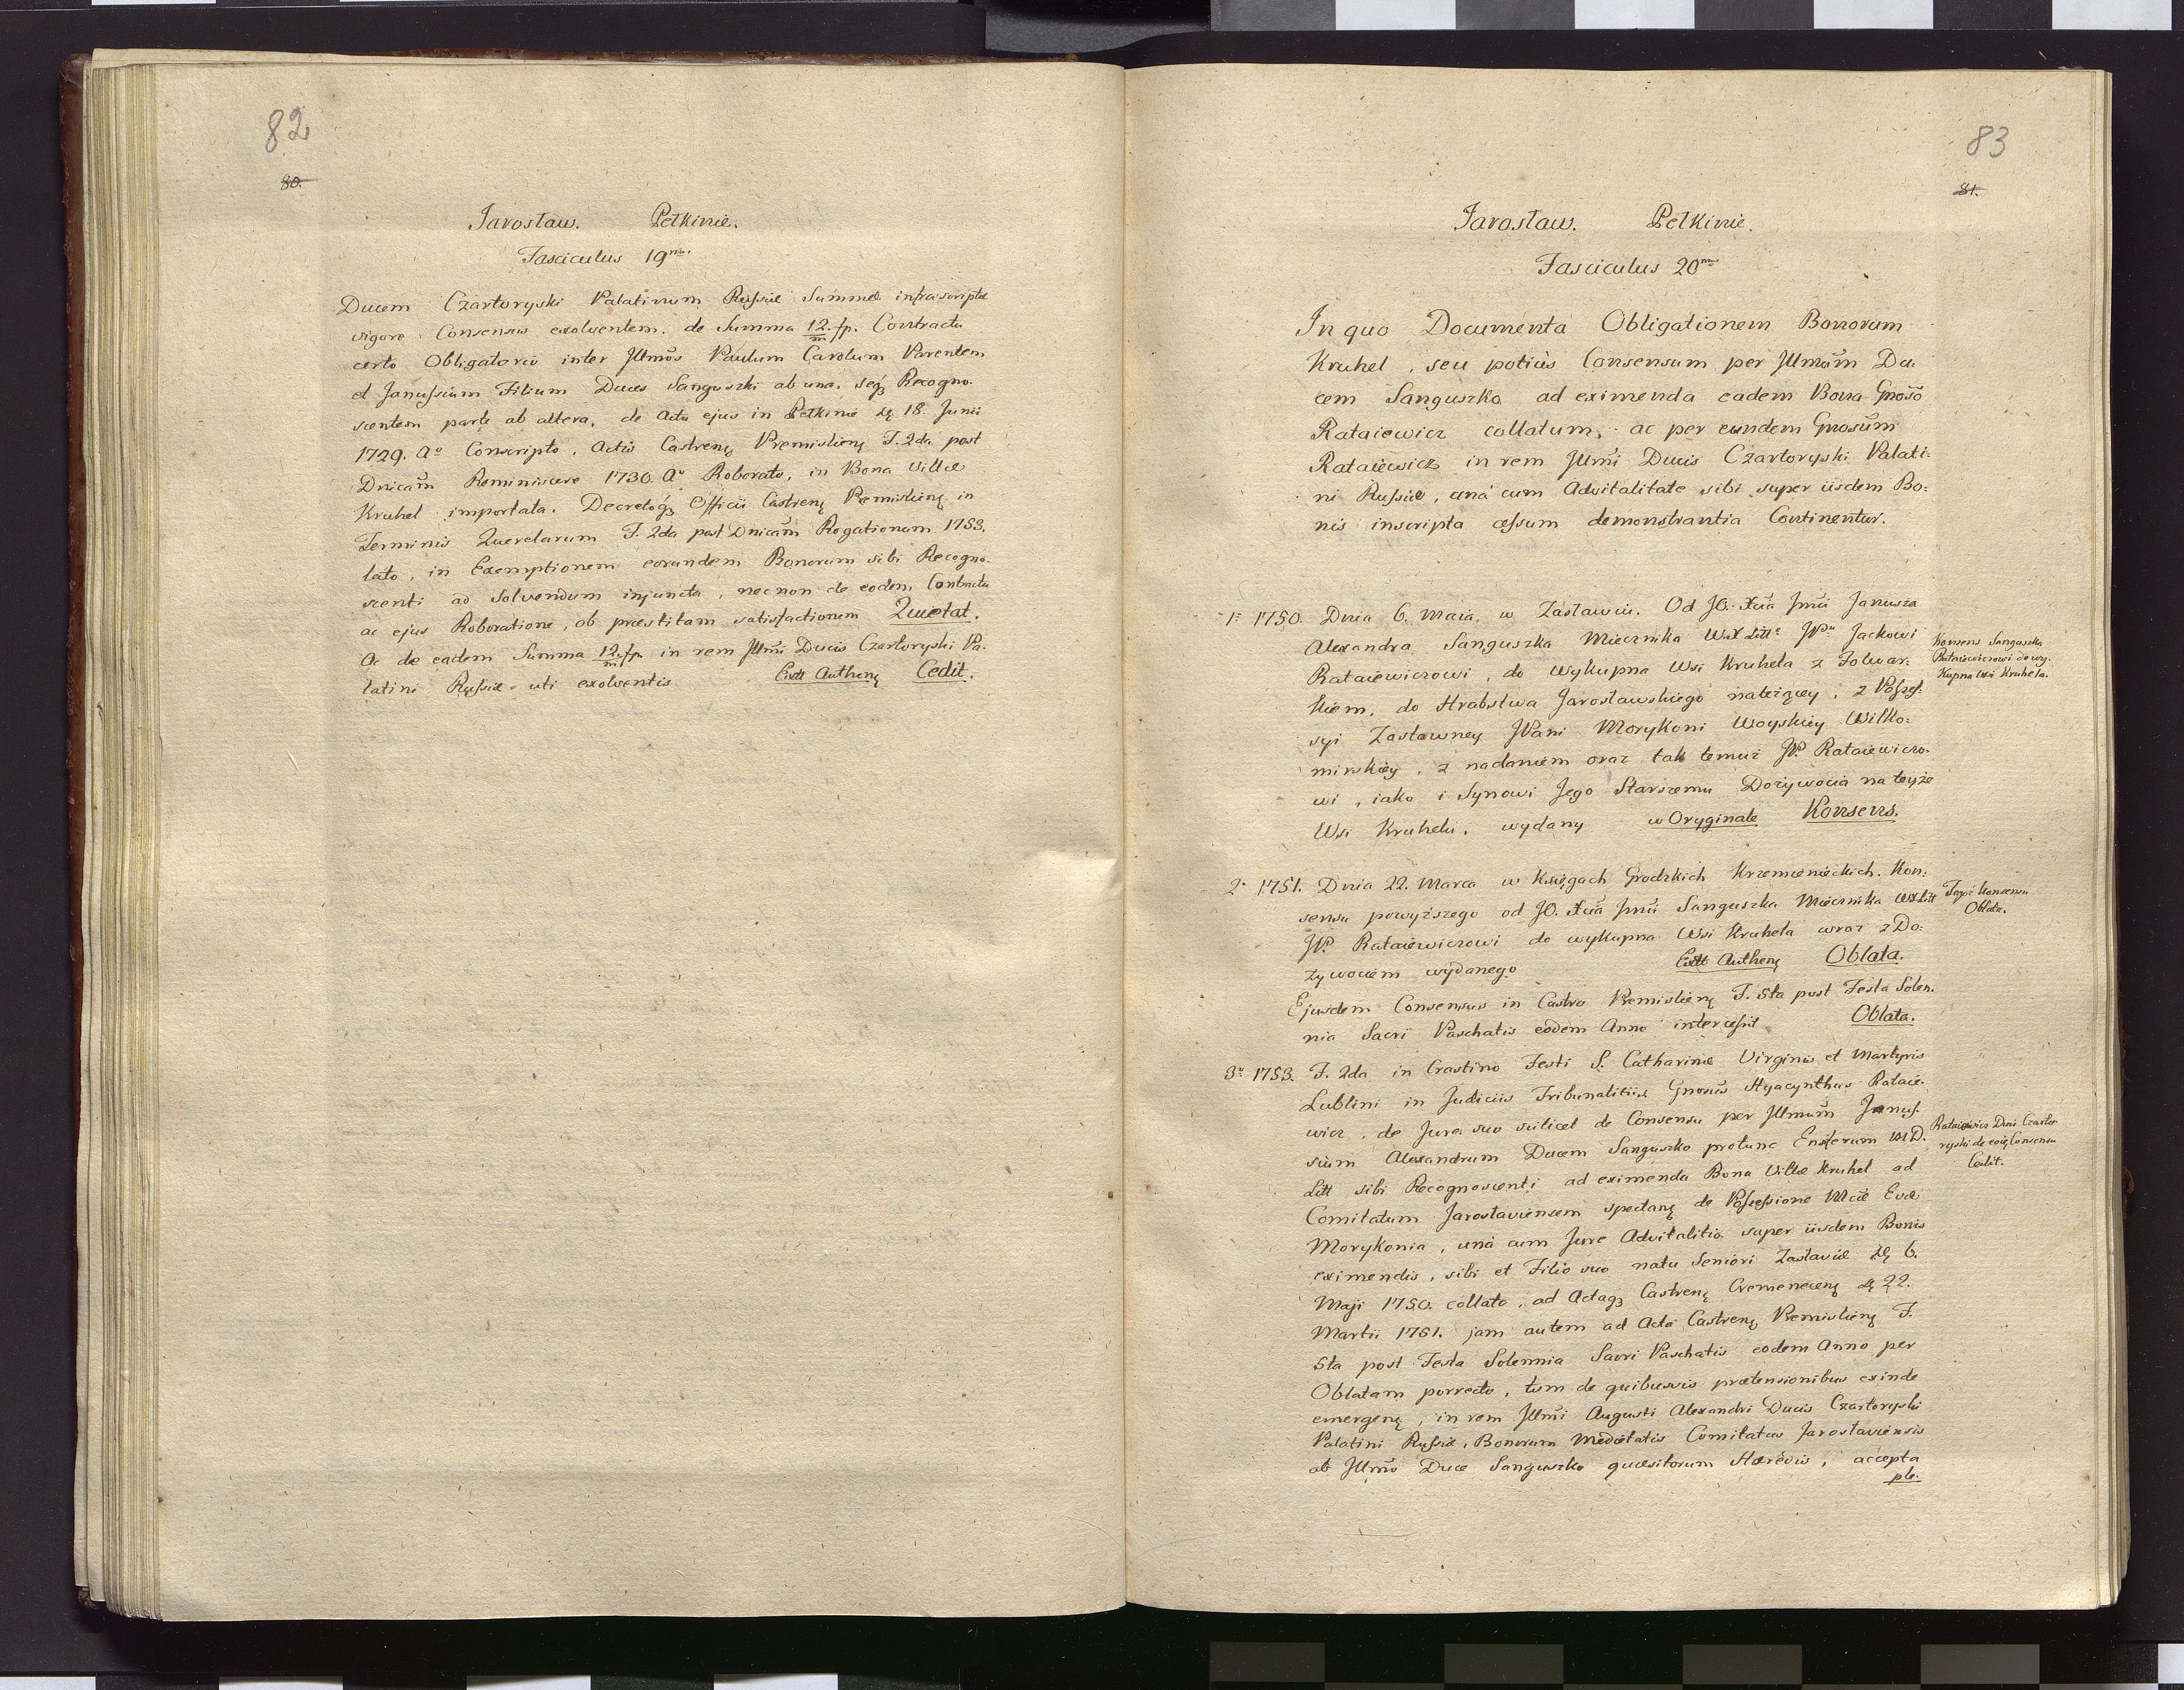 82
80.
Jarosław. Pełkinie.
Fasciculus 19nus.
Ducem Czartoryski Palatinum Russiæ Summæ infrascriptæ
vigore Consensus exolventem. de Summa 12/m fp. Contractu
certo Obligatorio inter Jllmos Paulum Carolum Parentem
et Janussium Filium Duces Sanguszki ab una, seq3 Recogno-
scentem parte ab altera, de Actu ejus in Pełkinie dę 18. Junii
1729. Ao Conscripto, Actis Castrenę Premislienę F. 2da post
Dnicam Reminiscere 1730. Ao Roborato, in Bona Villæ
Kruhel importata. Decretoq3 Officii Castrenę Premislienę in
Terminis Querelarum F. 2da post Dnicam Rogationum 1753.
lato, in Exemptionem eorundem Bonorum sibi Recogno-
scenti ad Solvendum injuncta, necnon de eodem Contractu
ac ejus Roboratione, ob præstitam satisfactionem Quietat.
Ac de eadem Summa 12/m fp. in rem Jllmi Ducis Czartoryski Pa-
latini Russiæ uti exolventis Extt Authenę Cedit.
83
81.
Jarosław. Pełkinie.
Fasciculus 20mus
In quo Documenta Obligationem Bonorum
Kruhel, seu potiùs Consensum per Jllmum Du-
cem Sanguszko ad eximenda eadem Bona Gnoso
Rataiewicz collatum, ac per eundem Gnosum
Rataiewicz in rem Jllmi Ducis Czartoryski Palati-
ni Russiæ, unà cum Advitalitate sibi super iisdem Bo-
nis inscripta cessum demonstrantia Continentur.
1o 1750. Dnia 6. Maia, w Zasławiu. Od JO. Xcia Jmći Janusza
Alexandra Sanguszka Miecznika WXLitto JPu Jackowi
Rataiewiczowi, do wykupna Wsi Kruhela z Folwar-
kiem, do Hrabstwa Jarosławskiego należącey, z Possess-
syi Zastawney JPani Morykoni Woyskiey Wiłko-
mirskiey, z nadaniem oraz tak temuż JP. Rataiewiczo-
wi, iako i Synowi Jego Starszemu Dożywocia na teyże
Wsi Kruhelu, wydany w Oryginale Konsens.
Konsens Sanguszka
Rataiewiczowi do wy-
kupna Wsi Kruhela.
2o 1751. Dnia 22. Marca w Księgach Grodzkich Krzemienieckich. Kon-
sensu powyższego od JO. Xcia Jmći Sanguszka Miecznika WXLitt
JP. Rataiewiczowi do wykupna Wsi Kruhela wraz z Do-
żywociem wydanego Extt Authenę Oblata.
Tegoż Konsensu
Oblata.
Ejusdem Consensus in Castro Premislienę F. 5ta post Festa Solen-
nia Sacri Paschatis eodem Anno intercessit Oblata.
3o 1753. F. 2da in Crastino Festi S. Catharinæ Virginis et Martyris
Lublini in Judiciis Tribunalitiis Gnosus Hyacynthus Rataie-
wicz, de Jure suo scilicet de Consensu per Jllmum Janus-
sium Alexandrum Ducem Sanguszko protunc Ensiferum M D.
Litt sibi Recognoscenti ad eximenda Bona Villæ Kruhel ad
Comitatum Jaroslaviensem spectanę de Possessione Mcæ Evæ
Morykonia, unà cum Jure Advitalitio super iisdem Bonis
eximendis, sibi et Filio suo natu Seniori Zaslaviæ dę 6.
Maji 1750. collato, ad Actaq3 Castrenę Cremenecenę dę 22.
Martii 1751. jam autem ad Acta Castrenę Premislienę F.
5ta post Festa Solennia Sacri Paschatis eodem Anno per
Oblatam porrecto, tum de quibusvis prætensionibus exinde
emergenę, in rem Jllmi Augusti Alexandri Ducis Czartoryski
Palatini Russiæ, Bonorum Medietatis Comitatus Jaroslaviensis
ab Jllmo Duce Sanguszko quæsitorum Hæredis, accepta
ple-
Rataiewicz Duci Czarto-
ryski de eoię Consensu
Cedit.